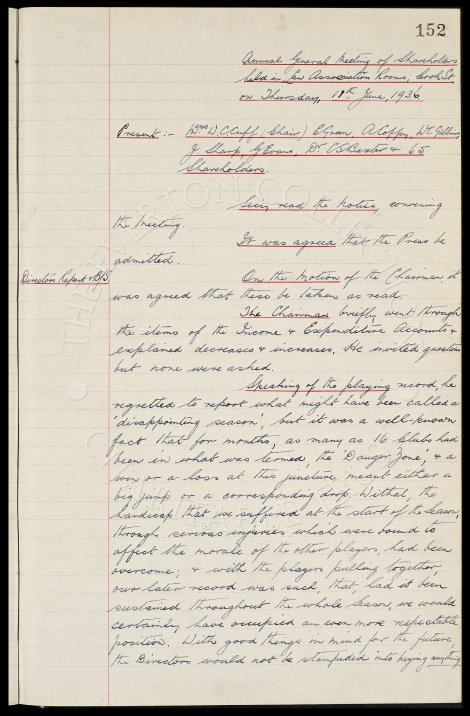 152
Annual General Meeting of Shareholders
held in Law Association Rooms, Cook St
on Thursday, 11th June, 1936
Present :- Messrs W.C. Cuff (Chair) E. Green, A. Coffey, W.C. Gibbins,
J. Sharp G. Evans, Dr. C.S. Baxter & 65
Shareholders.
Secy, read the Notice, convening
the Meeting.
It was agreed that the Press be
admitted.
Directors Report & B/S.
On the Motion of the Chairman, it
was agreed that these be taken as read.
The Chairman briefly went through
the items of the Income & Expenditure Accounts &
explained decreases & increases. He invited questions
but none were asked.
Speaking of the playing record, he
regretted to report what might have been called a
'disappointing season', but it was a well-known
fact that for months, as many as 16 Clubs had
been in what was termed, the 'Danger Zone', & a
win or a loss at this juncture meant either a
big jump or a corresponding drop. Withal, the
handicap that we suffered at the start of the Season,
through serious injuries which were bound to
affect the morale of the other players, had been
overcome; & with the players pulling together,
our later record was such, that, had it been
sustained throughout the whole season, we would
certainly have occupied an even more respectable
position. With good things in mind for the future,
the Directors would not be stampeded into buying anything
THE EVERTON COLLECTION